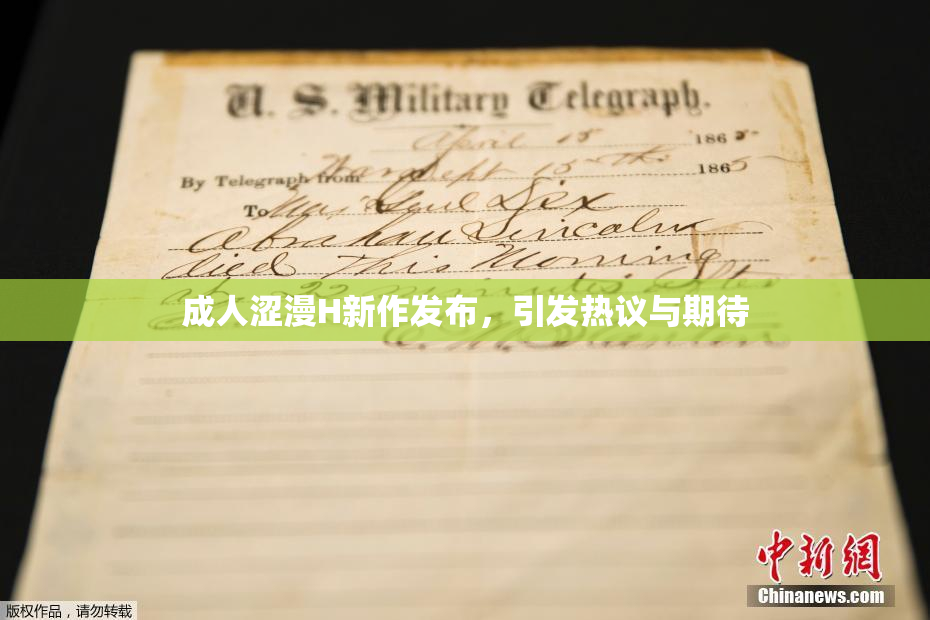 U. S. Military Telegraph.
April 15 1865
By Telegraph from War Dept 15th 1865
To Maj Genl Dix
Abraham Lincoln
died This Morning
at 22 minutes after
成人涩漫H新作发布，引发热议与期待
中新网
Chinanews.com
版权作品，请勿转载